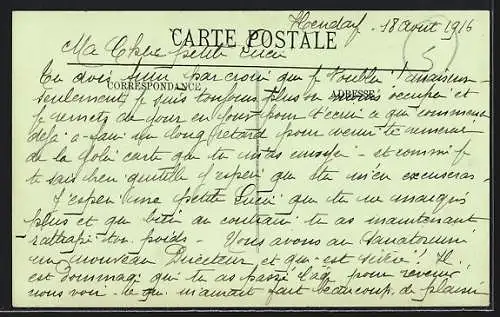 Hendaye - 18 Août 1916
CARTE POSTALE
Ma Chère petite Lucie
CORRESPONDANCE
ADRESSE
Tu dois bien pas croire que j'oublie
seulement je suis toujours plus ou moins occupée et
je remets de jour en jour pour t'écrire ce qui commence
déjà a faire un long retard pour venir te remercier
de la jolie carte que tu m'as envoyée - et comme je
te sais bien gentille j'espère que tu m'en excuseras -
J'espère ma petite Lucie que tu ne maigris
plus et que bien au contraire tu as maintenant
rattrapé ton poids - Nous avons au Sanatorium
un nouveau Directeur et qui est sévère! Il
est dommage que tu as passé l'âge pour revenir
nous voir - ce qui m'aurait fait beaucoup de plaisir